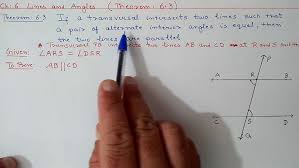 Ch: 6 Lines and Angles (Theorem: 6.3)
Theorem 6.3 If a transversal intersects two lines such that
a pair of alternate interior angles is equal, then
the two lines are parallel
A transversal PQ intersects two lines AB and CD at R and S
Given: ∠ARS = ∠DSR
To Prove: AB||CD
P
A R B
C S D
Q